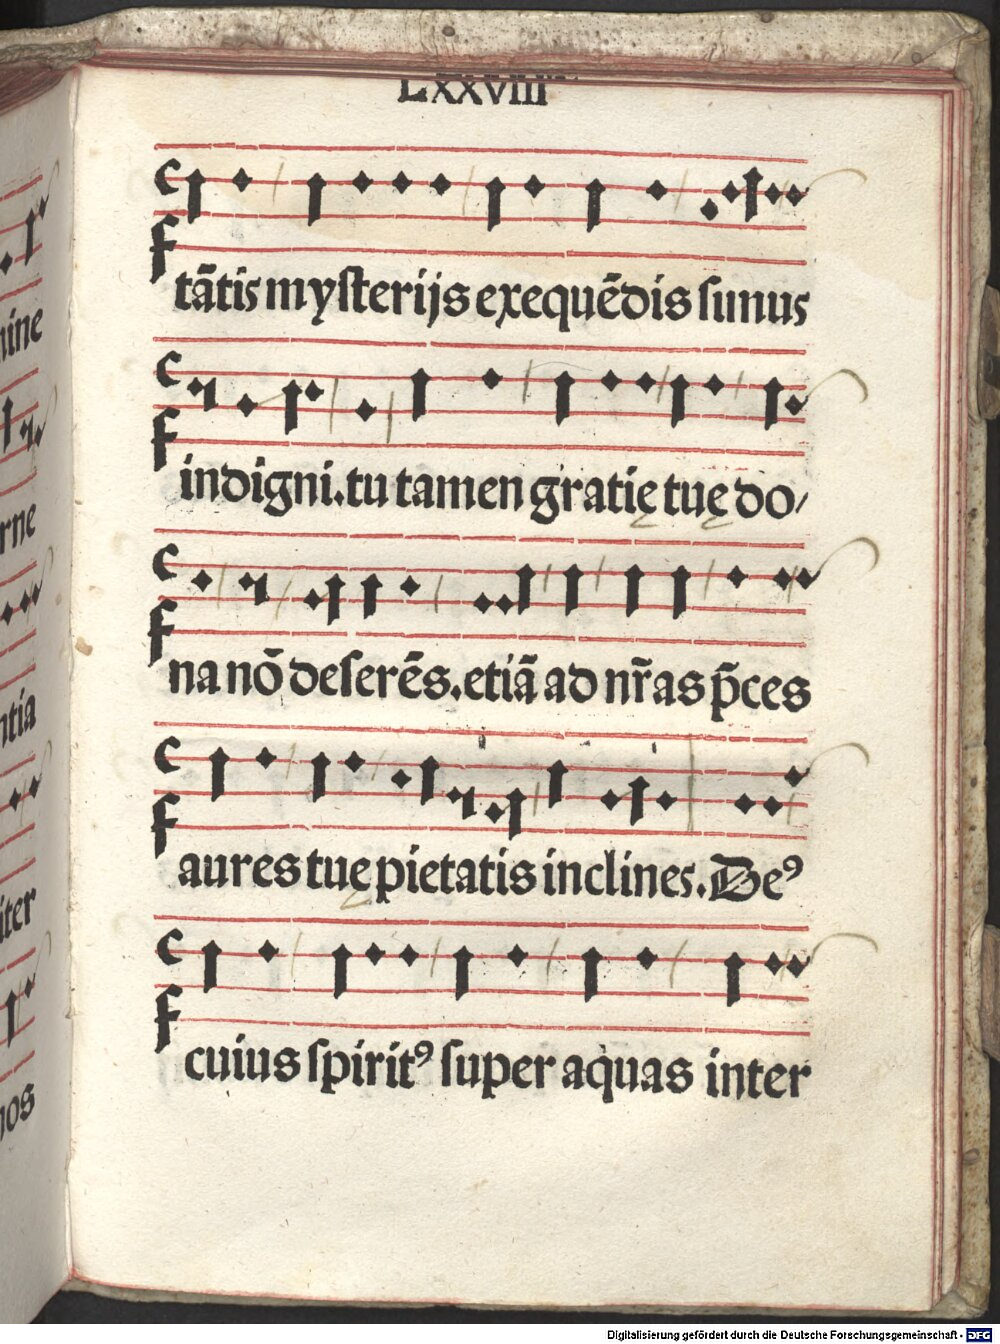 LXXVIII
tātis myſterijs exequēdis ſimus
indigni. tu tamen gratię tuę do/
na nō deſerēs. etiā ad nr̄as p̄ces
aures tuę pietatis inclines. Deꝰ
cuius ſpiritꝰ ſuper aquas inter
nine
rne
ntia
iter
nos
Digitalisierung gefördert durch die Deutsche Forschungsgemeinschaft - DFG